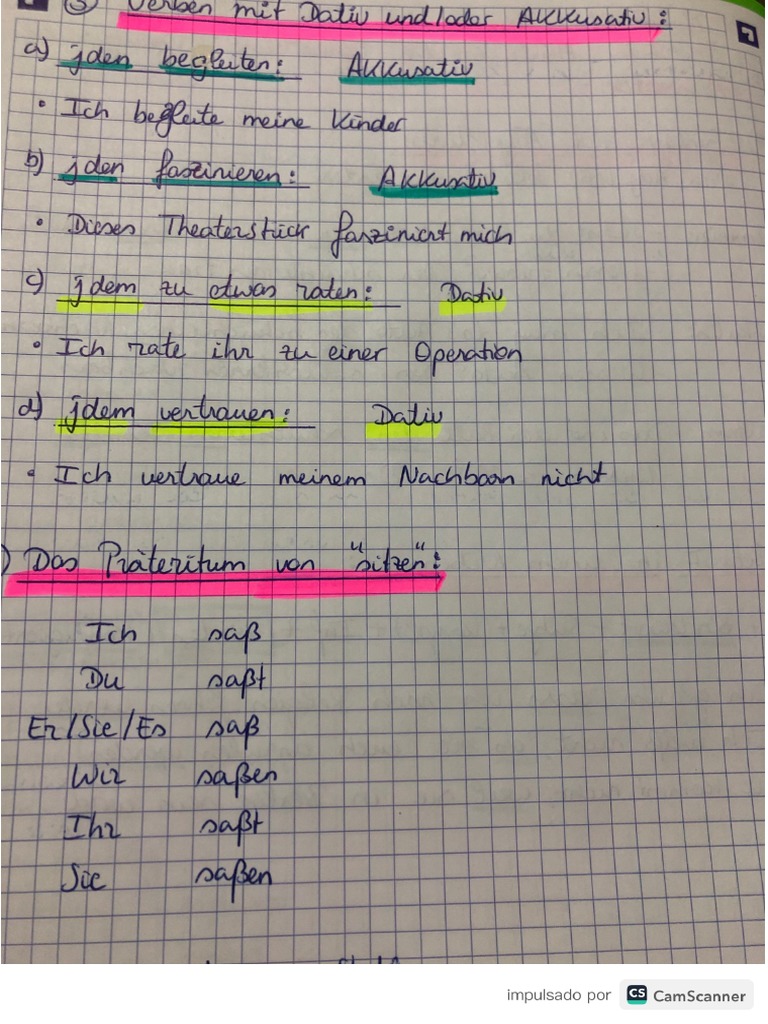 ③ Verben mit Dativ und/oder Akkusativ:
a) jden begleiten: Akkusativ
• Ich begleite meine Kinder
b) jden faszinieren: Akkusativ
• Dieses Theaterstück fasziniert mich
c) jdem zu etwas raten: Dativ
• Ich rate ihr zu einer Operation
d) jdem vertrauen: Dativ
• Ich vertraue meinem Nachbarn nicht
) Das Präteritum von "sitzen":
Ich saß
Du saßt
Er/Sie/Es saß
Wir saßen
Ihr saßt
Sie saßen
impulsado por CS CamScanner